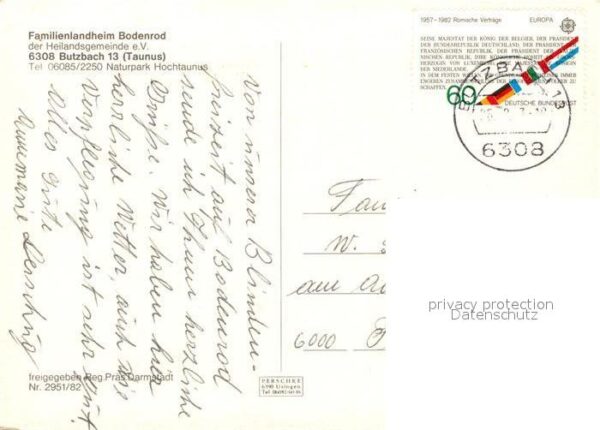 Familienlandheim Bodenrod
der Heilandsgemeinde e.V.
6308 Butzbach 13 (Taunus)
Tel 06085/2250 Naturpark Hochtaunus
Von unserer Blinden-
freizeit auf Bodenrod
sende ich Ihnen herzliche
Grüße. Wir haben hier
herrliche Wetter, auch die
Verpflegung ist sehr gut.
Alles Gute
Annemarie
freigegeben Reg.Präs.Darmstadt
Nr. 2951/82
PERSCHKE
6390 Usingen
1957-1982 Römische Verträge EUROPA CEPT
SEINE MAJESTÄT DER KÖNIG DER BELGIER, DER PRÄSIDENT
DER BUNDESREPUBLIK DEUTSCHLAND, DER PRÄSIDENT DER
FRANZÖSISCHEN REPUBLIK, DER PRÄSIDENT DER
ITALIENISCHEN REPUBLIK, IHRE KÖNIGLICHE HOHEIT DIE GROSS-
HERZOGIN VON LUXEMBURG, IHRE MAJESTÄT DIE KÖNIGIN
DER NIEDERLANDE,
IN DEM FESTEN WILLEN, DIE IMMER
ENGEREN ZUSAMMENSCHLUSS DER
SCHAFFEN
60
DEUTSCHE BUNDESPOST
BUTZBACH 13
6308
Fam
W.
am
6000 F
privacy protection
Datenschutz